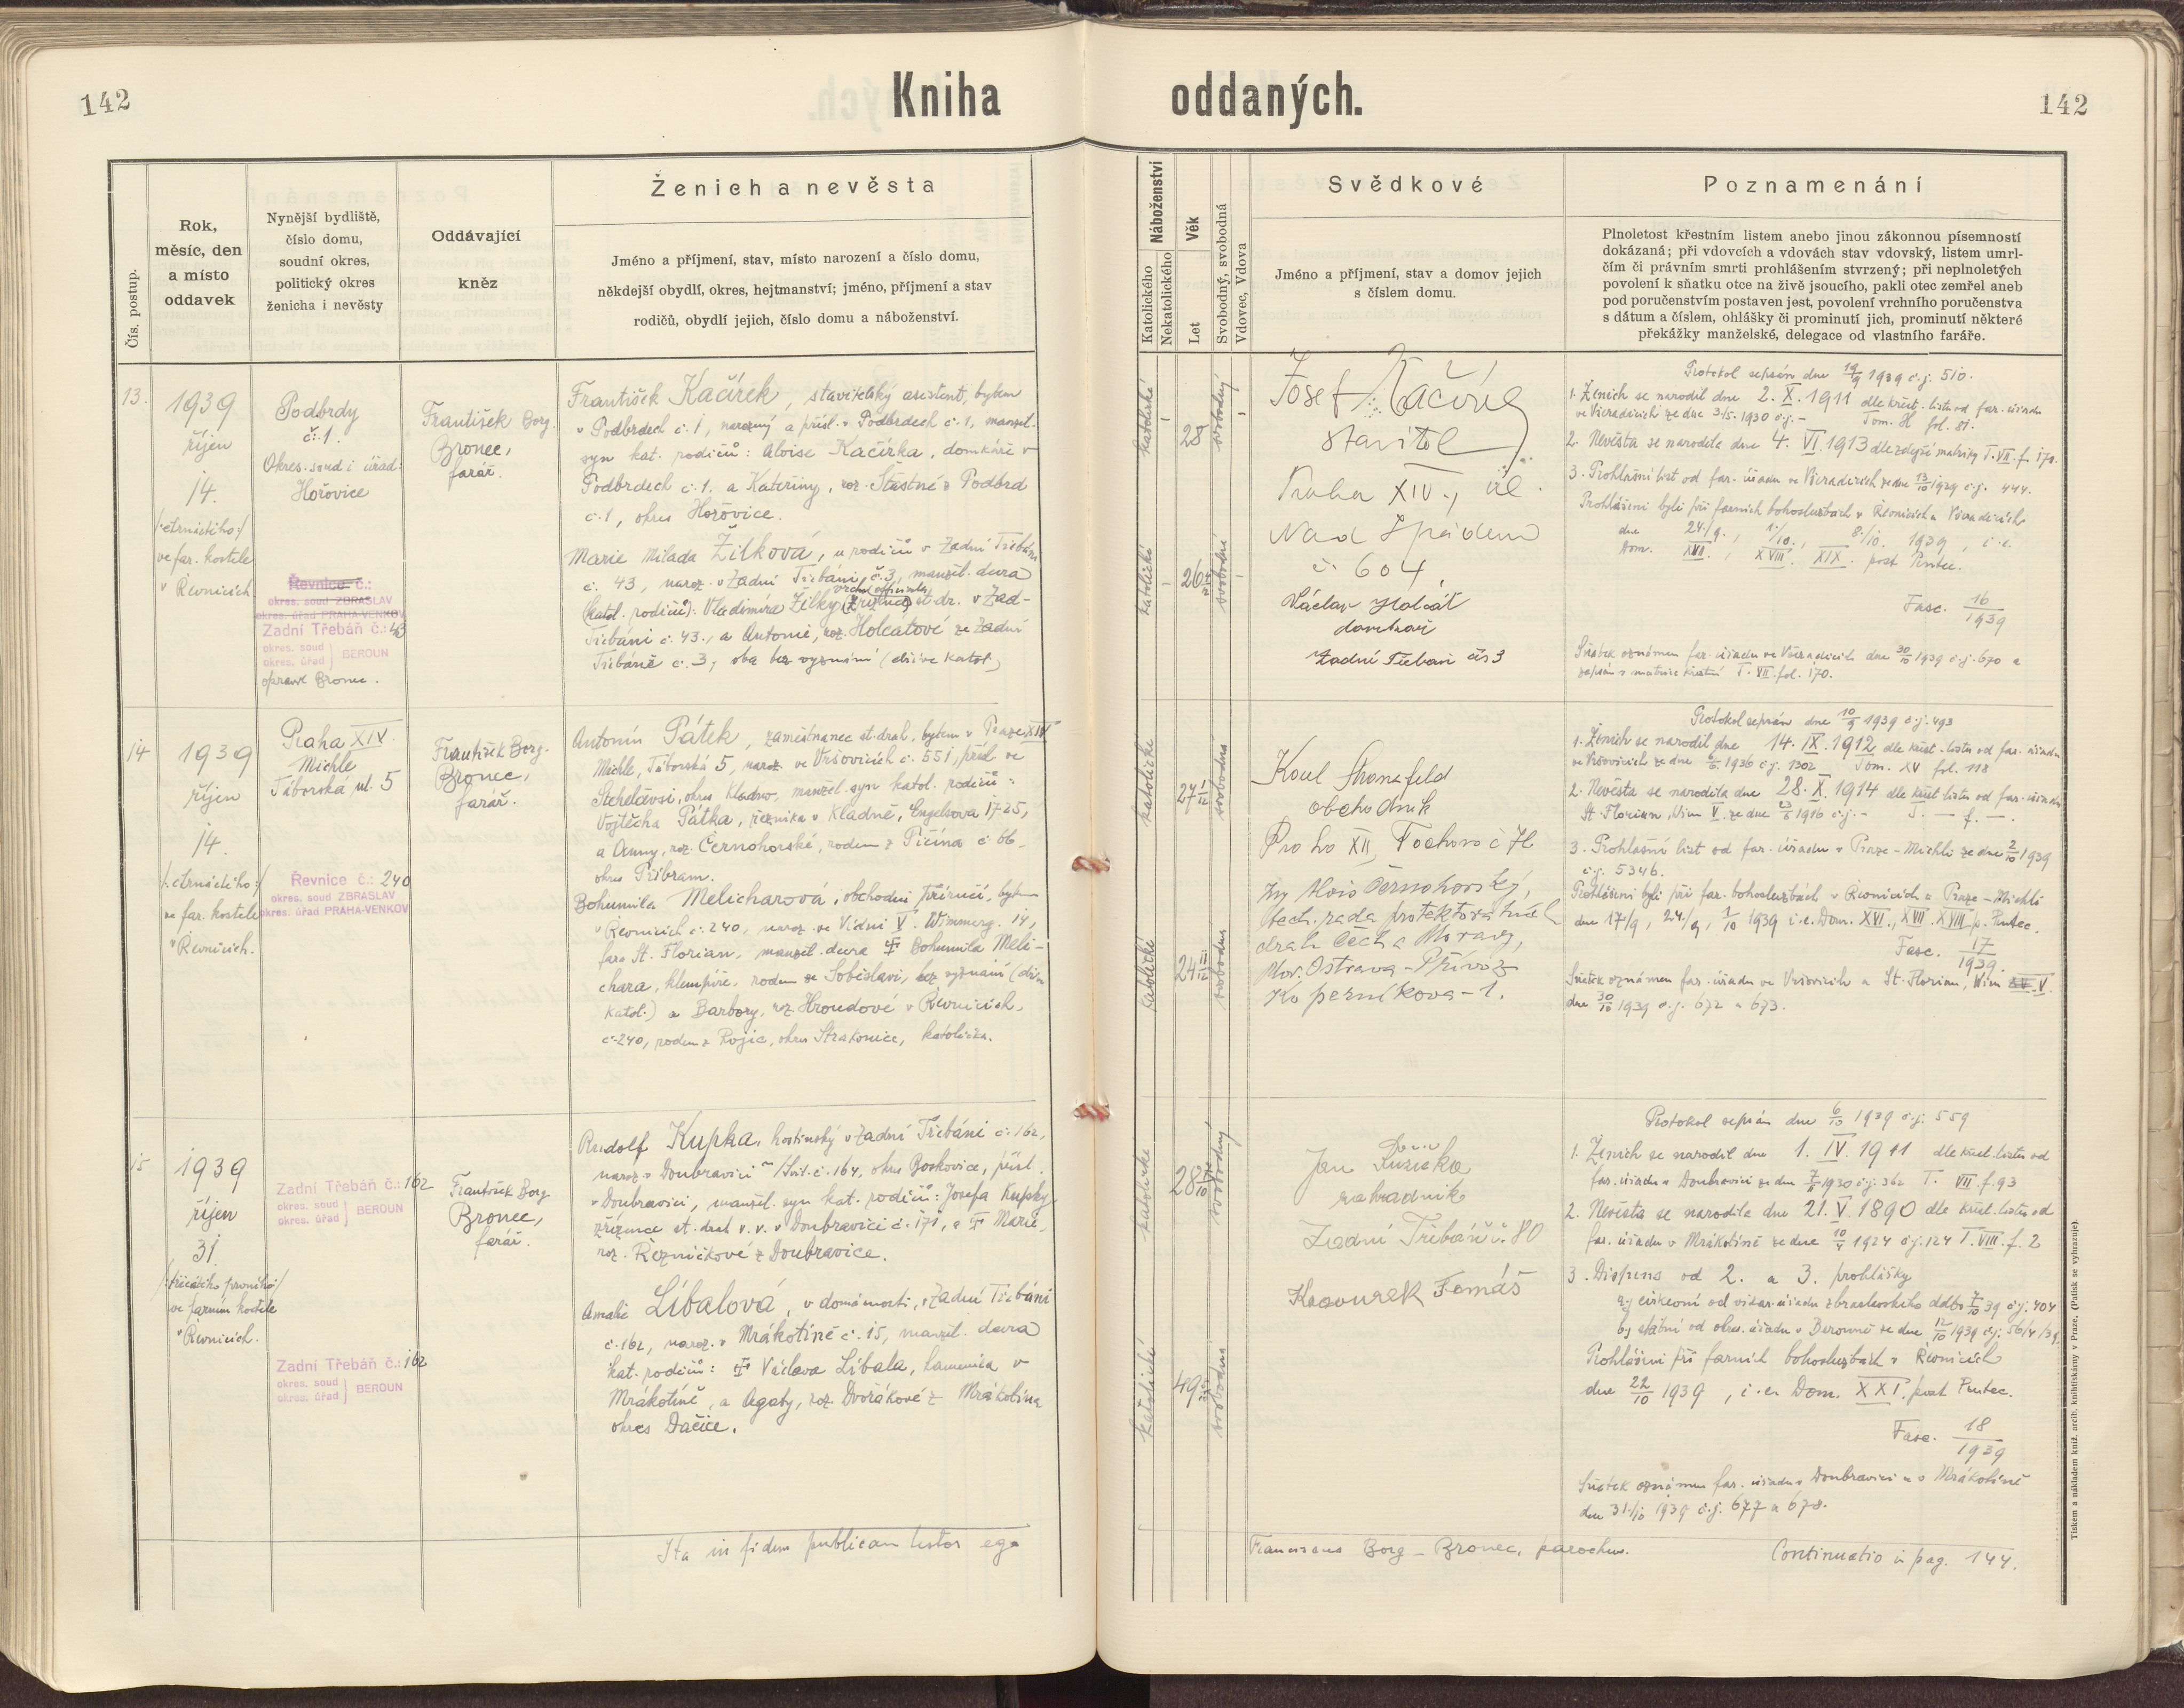 142
Kniha oddaných.
142
Čís. postup.
Rok,
měsíc, den
a místo
oddavek
Nynější bydliště,
číslo domu,
soudní okres,
politický okres
ženicha i nevěsty
Oddávající
kněz
Ženich a nevěsta
Jméno a příjmení, stav, místo narození a číslo domu,
někdejší obydlí, okres, hejtmanství; jméno, příjmení a stav
rodičů, obydlí jejich, číslo domu a náboženství.
Náboženství
Katolického
Nekatolického
Věk
Let
Svobodný, svobodná
Vdovec, Vdova
Svědkové
Jméno a příjmení, stav a domov jejich
s číslem domu.
Poznamenání
Plnoletost křestním listem anebo jinou zákonnou písemností
dokázaná; při vdovcích a vdovách stav vdovský, listem umrl-
čím či právním smrti prohlášením stvrzený; při neplnoletých
povolení k sňatku otce na živě jsoucího, pakli otec zemřel aneb
pod poručenstvím postaven jest, povolení vrchního poručenstva
s dátum a číslem, ohlášky či prominutí jich, prominutí některé
překážky manželské, delegace od vlastního faráře.
13.
1939
říjen
14.
/:čtrnáctého:/
ve far. kostele
v Řevnicích
Podbrdy
č. 1.
Okres. soud i úřad:
Hořovice
Řevnice č.:
okres. soud ZBRASLAV
okres. úřad PRAHA-VENKOV
Zadní Třebáň č.: 43
okres. soud
okres. úřad } BEROUN
opravil Bronec.
František Borg.
Bronec,
farář.
František Kačírek, stavitelský asistent, bytem
v Podbrdech č. 1, narozený a přísl. v Podbrdech č. 1, manžel.
syn kat. rodičů: Aloise Kačírka, domkáře v
Podbrdech č. 1. a Kateřiny, roz. Šťastné z Podbrd
č. 1, okres Hořovice.
Marie Milada Žilková, u rodičů v Zadní Třebáni
č. 43, naroz. v Zadní Třebáni, č. 3, manžel. dcera
(katol. rodičů): Vladimíra Žilky (zřízence) st. dr. v Zad-
Třebáni č. 43., a Antonie, roz. Holcátové ze Zadní
Třebáně č. 3, oba bez vyznání (dříve katol.)
katolické
28
svobodný
katolické
26 4/12
svobodná
Josef Kačírek
stavitel
Praha XIV., ul.
Nad Spádem
č. 604
Václav Holcát
domkař
Zadní Třebaň čís 3
Protokol sepsán dne 19/9 1939 č.j. 510.
1. Ženich se narodil dne 2. X. 1911 dle křest. listu od far. úřadu
ve Všeradicích ze dne 3/5. 1930 č.j. - Tom. H fol. 81.
2. Nevěsta se narodila dne 4. VI. 1913 dle zdejší matriky T. VII. f. 170.
3. Prohlášní list od far. úřadu ve Všeradicích ze dne 13/10 1939 č.j. 444.
Prohlášeni byli při farních bohoslužbách v Řevnicích a Všeradicích
dne 24./9., 1./10., 8./10. 1939, i. e.
Dom. XVII., XVIII., XIX. post Pentec.
Fasc. 16/1939
Sňatek oznámen far. úřadu ve Všeradicích dne 30/10 1939 č.j. 670 a
zapsán v matrice křestní T. VII. fol. 170.
14
1939
říjen
14.
/:čtrnáctého:/
ve far. kostele
v Řevnicích.
Praha XIV.
Michle
Táborská ul. 5
Řevnice č.: 240
okres. soud ZBRASLAV
okres. úřad PRAHA-VENKOV
František Borg.
Bronec,
farář.
Antonín Pátek, zaměstnanec st. drah, bytem v Praze XIV
Michle, Táborská 5, naroz. ve Vršovicích č. 551, přísl. ve
Stehelčevsi, okres Kladno, manžel. syn katol. rodičů:
Vojtěcha Pátka, řezníka v Kladně, Engelsova 1725,
a Anny, roz. Černohorské, rodem z Pičína č. 66
okres Příbram.
Bohumila Melicharová, obchodní příručí, bytem
v Řevnicích č. 240, naroz. ve Vídni V. Wimmerg. 14,
fara St. Florian, manžel. dcera † Bohumila Meli-
chara, klempíře, rodem ze Soběslavi, bez vyznání (dřív
katol.) a Barbory, roz. Hroudové v Řevnicích,
č. 240, rodem z Rojic, okres Strakonice, katolička.
katolické
27 1/12
svobodný
katolické
24 11/12
svobodná
Karel
obchodník
Praha XII, Fochova č 71
Ing Alois Černohorský,
tech. rada protektorátních
drah Čech a Moravy,
Mor. Ostrava - Přívoz
Koperníkova - 1.
Protokol sepsán dne 10/9 1939 č.j. 493
1. Ženich se narodil dne 14. IX. 1912 dle křest. listu od far. úřadu
ve Vršovicích ze dne 1936 č.j. 1302 Tom. XV fol. 118
2. Nevěsta se narodila dne 28. X. 1914 dle křest. listu od far. úřadu
St. Florian, Wien V. ze dne 1916 č.j. - T. — f. —.
3. Prohlášní list od far. úřadu v Praze - Michli ze dne 2/10 1939
č.j. 5346.
Prohlášeni byli při far. bohoslužbách v Řevnicích a Praze - Michli
dne 17/9, 24./9, 1/10 1939 i. e. Dom. XVI., XVII. XVIII. p. Pentec.
Fasc. 17/1939.
Sňatek oznámen far. úřadu ve Vršovicích a St. Florian, Wien V.
dne 30/10 1939 č.j. 672 a 673.
15
1939
říjen
31.
/:třicátého prvního:/
ve farním kostele
v Řevnicích.
Zadní Třebáň č.: 162
okres. soud
okres. úřad } BEROUN
Zadní Třebáň č.: 162
okres. soud
okres. úřad } BEROUN
František Borg
Bronec,
farář.
Rudolf Kupka, hostinský v Zadní Třebáni č. 162,
naroz. v Doubravici n/Svit. č. 164, okres Boskovice, přísl.
v Doubravici, manžel. syn kat. rodičů: Josefa Kupky
zřízence st. drah v. v. v Doubravici č. 171, a † Marie,
roz. Řezníčkové z Doubravice.
Amalie Líbalová, v domácnosti, v Zadní Třebáni
č. 162, naroz. v Mrákotíně č. 15, manžel. dcera
kat. rodičů: † Václava Líbala, kameníka v
Mrákotíně, a Agaty, roz. Dvořákové z Mrákotína
okres Dačice.
katolické
28
svobodný
katolické
49
svobodná
Jan Růžička
zahradník
Zadní Třebáň č. 80
Kocourek Tomáš
Protokol sepsán dne 6/10 1939 č.j. 559
1. Ženich se narodil dne 1. IV. 1911 dle křest. listu od
far. úřadu v Doubravici ze dne 1930 č.j. 362 T. VII. f. 93
2. Nevěsta se narodila dne 21. V. 1890 dle křest. listu od
far. úřadu v Mrákotíně ze dne 10/4 1924 č.j. 124 T. VIII. f. 2
3. Dispens od 2. a 3. prohlášky
a) církevní od vikar. úřadu zbraslavského ddto 7/10 39 č.j. 404
b) státní od okres. úřadu v Berouně ze dne 12/10 1939 č.j. 56/4/39.
Prohlášeni při farních bohoslužbách v Řevnicích
dne 22/10 1939, i. e. Dom. XXI. post Pentec.
Fasc. 18/1939
Sňatek oznámen far. úřadu v Doubravici a v Mrákotíně
dne 31./10 1939 č.j. 677 a 678.
Ita in fidem publicam testor ego
Franciscus Borg - Bronec, parochus.
Continuatio in pag. 144.
Tiskem a nákladem kníž. arcib. knihtiskárny v Praze. (Patisk se vyhrazuje).